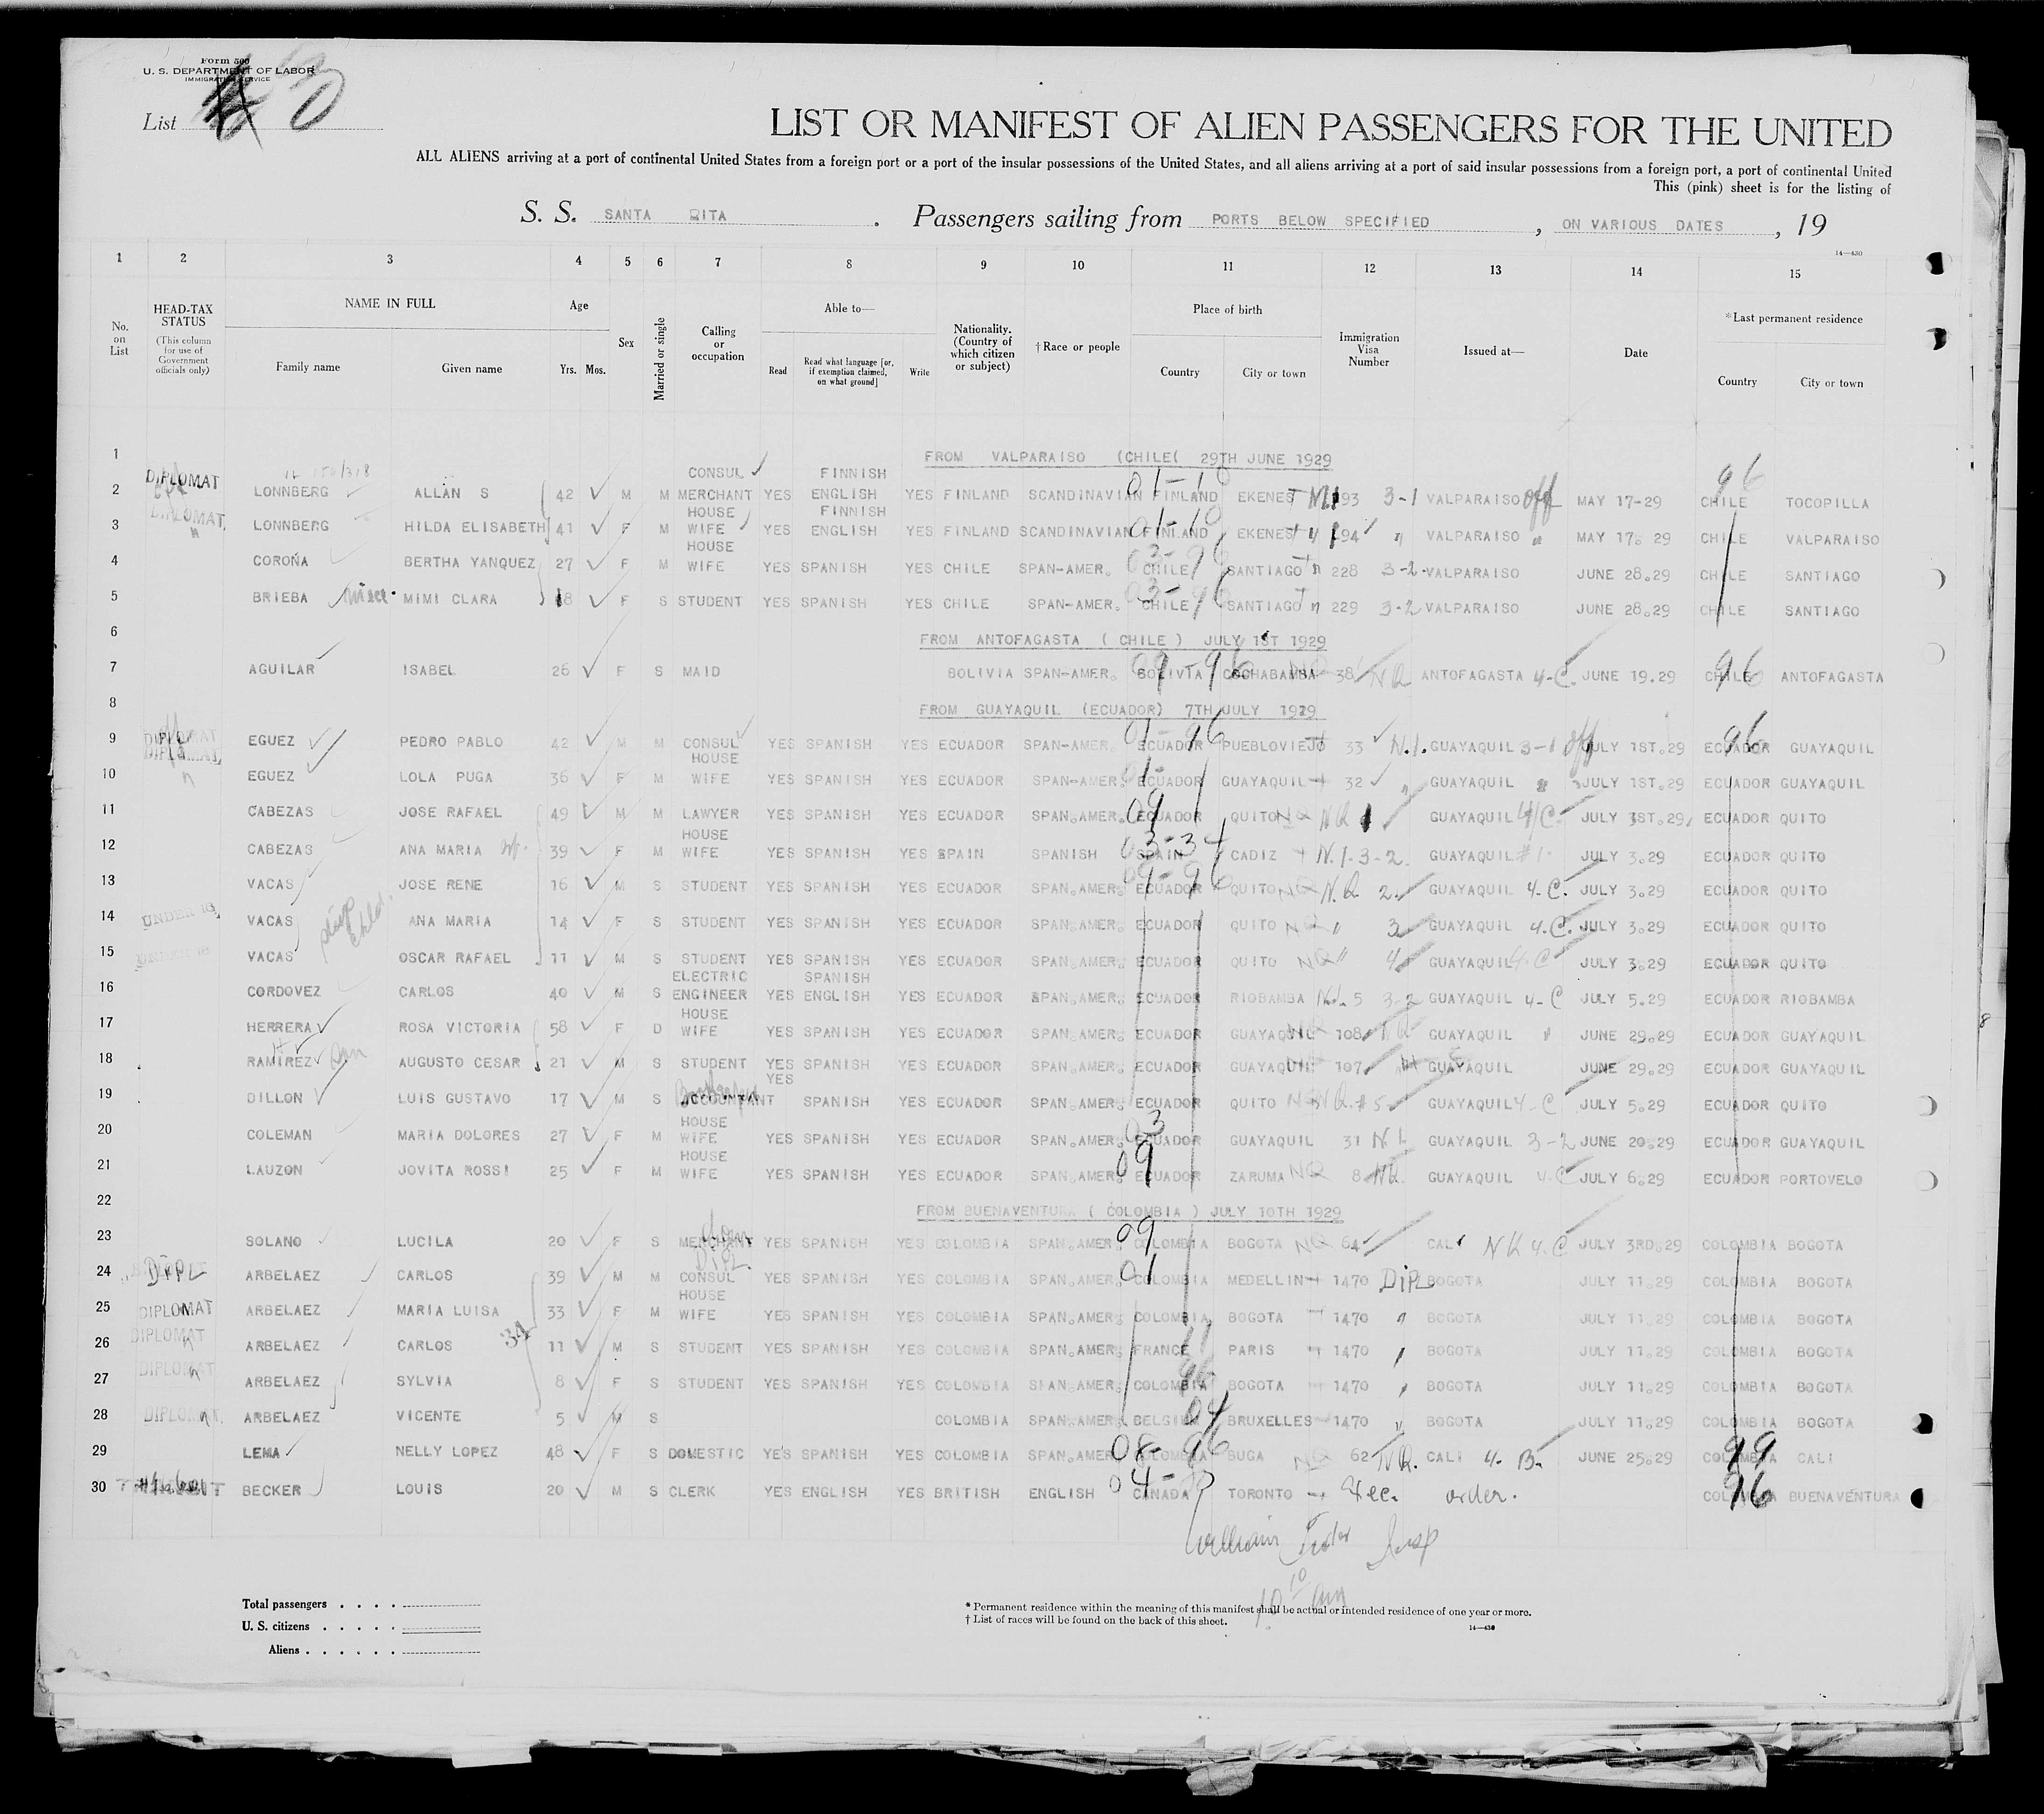 Form 500
U. S. DEPARTMENT OF LABOR
IMMIGRATION SERVICE
List 30
LIST OR MANIFEST OF ALIEN PASSENGERS FOR THE UNITED
ALL ALIENS arriving at a port of continental United States from a foreign port or a port of the insular possessions of the United States, and all aliens arriving at a port of said insular possessions from a foreign port, a port of continental United
This (pink) sheet is for the listing of
S. S. SANTA RITA . Passengers sailing from PORTS BELOW SPECIFIED , ON VARIOUS DATES , 19
14—430
1 2 3 4 5 6 7 8 9 10 11 12 13 14 15
No. on List
HEAD-TAX STATUS (This column for use of Government officials only)
NAME IN FULL Family name Given name
Age Yrs. Mos.
Sex
Married or single
Calling or occupation
Able to— Read Read what language [or, if exemption claimed, on what ground] Write
Nationality. (Country of which citizen or subject)
†Race or people
Place of birth Country City or town
Immigration Visa Number
Issued at—
Date
*Last permanent residence Country City or town
1 FROM VALPARAISO (CHILE( 29TH JUNE 1929
2 DIPLOMAT LONNBERG ALLAN S 42 M M CONSUL MERCHANT YES FINNISH ENGLISH YES FINLAND SCANDINAVIAN FINLAND 01-10 EKENES 193 3-1 VALPARAISO off MAY 17-29 CHILE 96 TOCOPILLA
3 DIPLOMAT LONNBERG HILDA ELISABETH 41 F M HOUSE WIFE YES FINNISH ENGLISH YES FINLAND SCANDINAVIAN FINLAND 01-10 EKENES 194 " VALPARAISO " MAY 17. 29 CHILE VALPARAISO
4 COROÑA BERTHA YANQUEZ 27 F M HOUSE WIFE YES SPANISH YES CHILE SPAN-AMER. CHILE 03-96 SANTIAGO 228 3-2 VALPARAISO JUNE 28.29 CHILE SANTIAGO
5 BRIEBA MIMI CLARA 18 F S STUDENT YES SPANISH YES CHILE SPAN-AMER. CHILE 03-96 SANTIAGO 229 3-2 VALPARAISO JUNE 28.29 CHILE SANTIAGO
6 FROM ANTOFAGASTA ( CHILE ) JULY 1ST 1929
7 AGUILAR ISABEL 26 F S MAID BOLIVIA SPAN-AMER. BOLIVIA 09 96 COCHABAMBA 38 NQ ANTOFAGASTA 4-C. JUNE 19.29 CHILE 96 ANTOFAGASTA
8 FROM GUAYAQUIL (ECUADOR) 7TH JULY 1929
9 DIPLOMAT EGUEZ PEDRO PABLO 42 M M CONSUL YES SPANISH YES ECUADOR SPAN-AMER. ECUADOR 01-96 PUEBLOVIEJO 33 N.I. GUAYAQUIL 3-1 off JULY 1ST.29 ECUADOR 96 GUAYAQUIL
10 DIPLOMAT EGUEZ LOLA PUGA 36 F M HOUSE WIFE YES SPANISH YES ECUADOR SPAN-AMER. ECUADOR 01- GUAYAQUIL 32 " GUAYAQUIL " JULY 1ST.29 ECUADOR GUAYAQUIL
11 CABEZAS JOSE RAFAEL 49 M M LAWYER YES SPANISH YES ECUADOR SPAN.AMER. ECUADOR 09 QUITO NQ NQ 1 GUAYAQUIL 4/C. JULY 3ST.29 ECUADOR QUITO
12 CABEZAS ANA MARIA wf. 39 F M HOUSE WIFE YES SPANISH YES SPAIN SPANISH SPAIN 03-34 CADIZ N.I-3-2. GUAYAQUIL #1 JULY 3.29 ECUADOR QUITO
13 VACAS JOSE RENE 16 M S STUDENT YES SPANISH YES ECUADOR SPAN.AMER. ECUADOR 09-96 QUITO NQ N.Q. 2 GUAYAQUIL 4-C. JULY 3.29 ECUADOR QUITO
14 UNDER 16 VACAS step child. ANA MARIA 14 F S STUDENT YES SPANISH YES ECUADOR SPAN.AMER. ECUADOR QUITO NQ " 3 GUAYAQUIL 4.C. JULY 3.29 ECUADOR QUITO
15 UNDER 16 VACAS OSCAR RAFAEL 11 M S STUDENT YES SPANISH YES ECUADOR SPAN.AMER. ECUADOR QUITO NQ " 4 GUAYAQUIL 4-C JULY 3.29 ECUADOR QUITO
16 CORDOVEZ CARLOS 40 M S ELECTRIC ENGINEER YES SPANISH ENGLISH YES ECUADOR SPAN.AMER. ECUADOR RIOBAMBA N.I. 5 3-2 GUAYAQUIL 4-C JULY 5.29 ECUADOR RIOBAMBA
17 HERRERA ROSA VICTORIA 58 F D HOUSE WIFE YES SPANISH YES ECUADOR SPAN.AMER. ECUADOR GUAYAQUIL 108 NQ GUAYAQUIL " JUNE 29.29 ECUADOR GUAYAQUIL
18 RAMIREZ Son AUGUSTO CESAR 21 M S STUDENT YES SPANISH YES ECUADOR SPAN.AMER. ECUADOR GUAYAQUIL 107 GUAYAQUIL JUNE 29.29 ECUADOR GUAYAQUIL
19 DILLON LUIS GUSTAVO 17 M S ACCOUNTANT YES SPANISH YES ECUADOR SPAN.AMER. ECUADOR QUITO NQ. #5 GUAYAQUIL 4-C JULY 5.29 ECUADOR QUITO
20 COLEMAN MARIA DOLORES 27 F M HOUSE WIFE YES SPANISH YES ECUADOR SPAN.AMER. ECUADOR 03 GUAYAQUIL 31 N I. GUAYAQUIL 3-2 JUNE 20.29 ECUADOR GUAYAQUIL
21 LAUZON JOVITA ROSSI 25 F M HOUSE WIFE YES SPANISH YES ECUADOR SPAN.AMER. ECUADOR 09 ZARUMA NQ 8 NQ. GUAYAQUIL 4-C JULY 6.29 ECUADOR PORTOVELO
22 FROM BUENAVENTURA ( COLOMBIA ) JULY 10TH 1929
23 SOLANO LUCILA 20 F S MERCHANT YES SPANISH YES COLOMBIA SPAN.AMER. COLOMBIA 09 BOGOTA NQ 64 CALI 4.C JULY 3RD.29 COLOMBIA BOGOTA
24 DIPL ARBELAEZ CARLOS 39 M M DIPL. CONSUL YES SPANISH YES COLOMBIA SPAN.AMER. COLOMBIA 01 MEDELLIN 1470 DIPL BOGOTA JULY 11.29 COLOMBIA BOGOTA
25 DIPLOMAT ARBELAEZ MARIA LUISA 33 F M HOUSE WIFE YES SPANISH YES COLOMBIA SPAN.AMER. COLOMBIA BOGOTA 1470 " BOGOTA JULY 11.29 COLOMBIA BOGOTA
26 DIPLOMAT ARBELAEZ CARLOS 34 11 M S STUDENT YES SPANISH YES COLOMBIA SPAN.AMER. FRANCE 11 PARIS 1470 " BOGOTA JULY 11.29 COLOMBIA BOGOTA
27 DIPLOMAT ARBELAEZ SYLVIA 8 F S STUDENT YES SPANISH YES COLOMBIA SPAN.AMER. COLOMBIA 96 BOGOTA 1470 " BOGOTA JULY 11.29 COLOMBIA BOGOTA
28 DIPLOMAT ARBELAEZ VICENTE 5 M S COLOMBIA SPAN.AMER. BELGIUM 04 BRUXELLES 1470 " BOGOTA JULY 11.29 COLOMBIA BOGOTA
29 LEMA NELLY LOPEZ 48 F S DOMESTIC YES SPANISH YES COLOMBIA SPAN.AMER. COLOMBIA 08-96 BUGA NQ 62 NQ. CALI 4-B- JUNE 25.29 COLOMBIA 99 CALI
30 BECKER LOUIS 20 M S CLERK YES ENGLISH YES BRITISH ENGLISH CANADA 04- TORONTO Exec. order. COLOMBIA 96 BUENAVENTURA
William Insp
10 10 am
Total passengers . . . .
U. S. citizens . . . . .
Aliens . . . . . .
* Permanent residence within the meaning of this manifest shall be actual or intended residence of one year or more.
† List of races will be found on the back of this sheet.
14—430